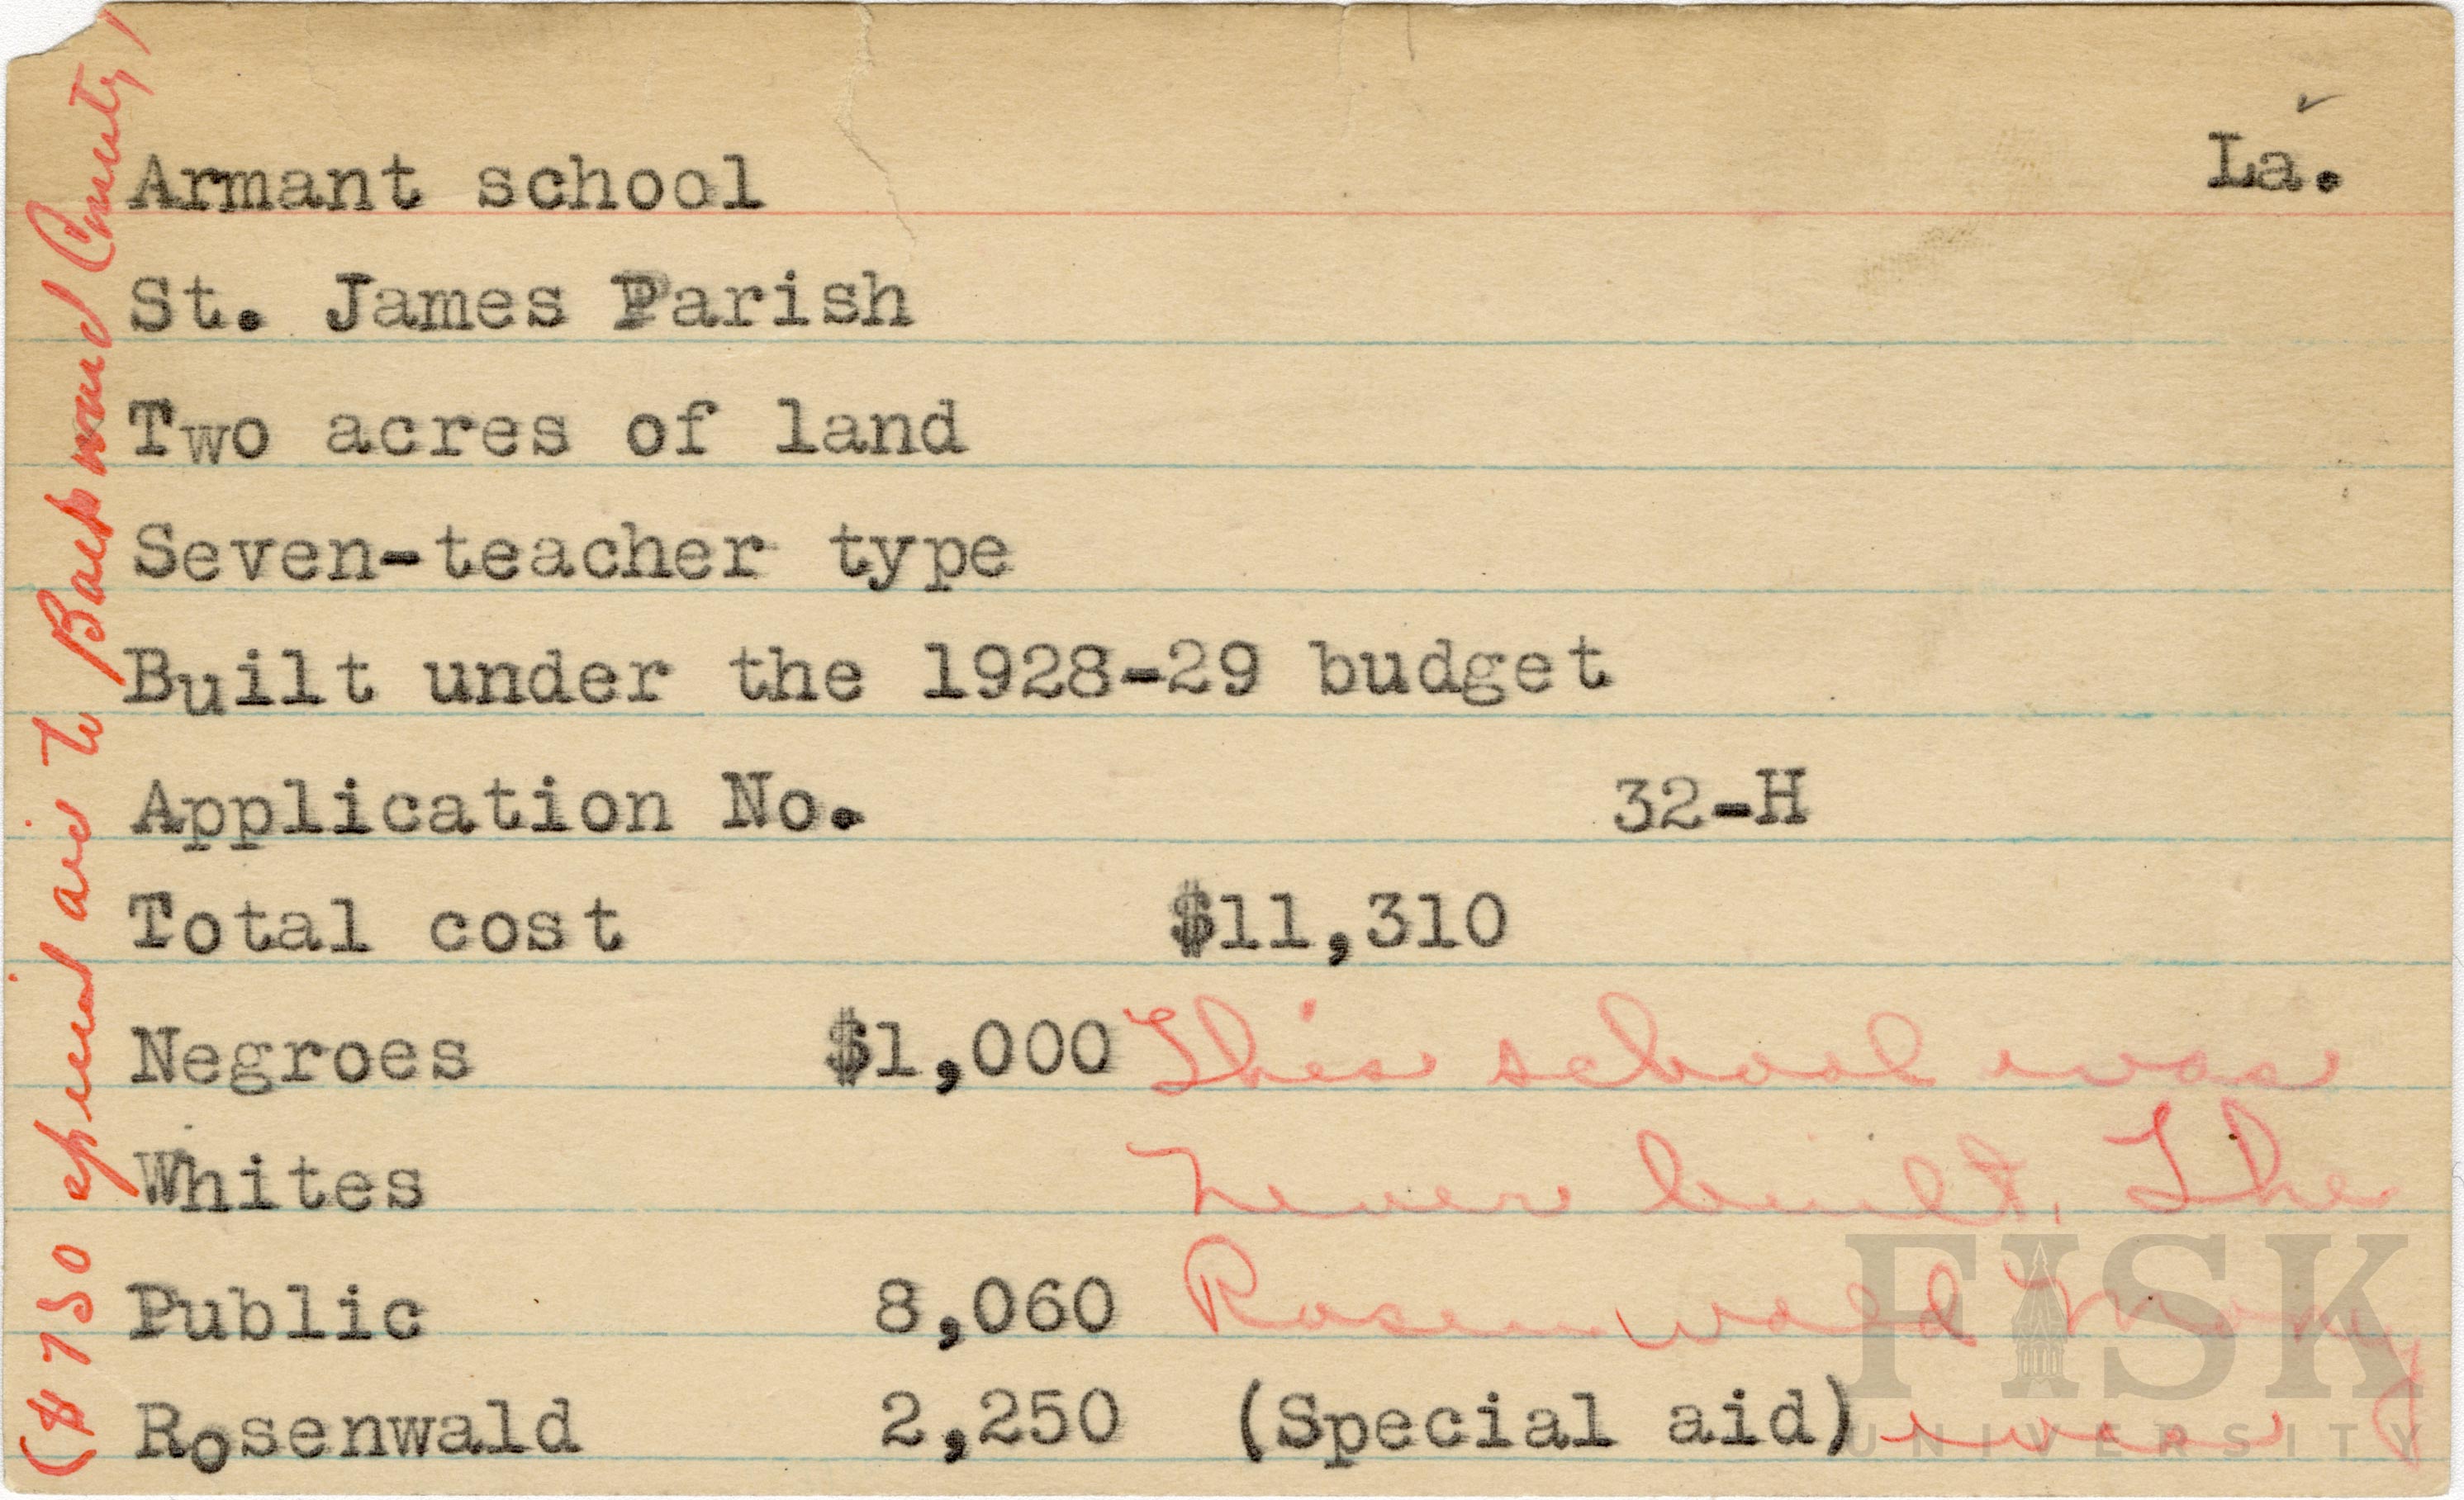 La.
Armant school
St. James Parish
Two acres of land
Seven-teacher type
Built under the 1928-29 budget
Application No. 32-H
Total cost $11,310
Negroes $1,000 This school was
Whites never built. The
Public 8,060 Rosenwald money
Rosenwald 2,250 (Special aid) was
($750 special aid to Backward County)
FISK
UNIVERSITY